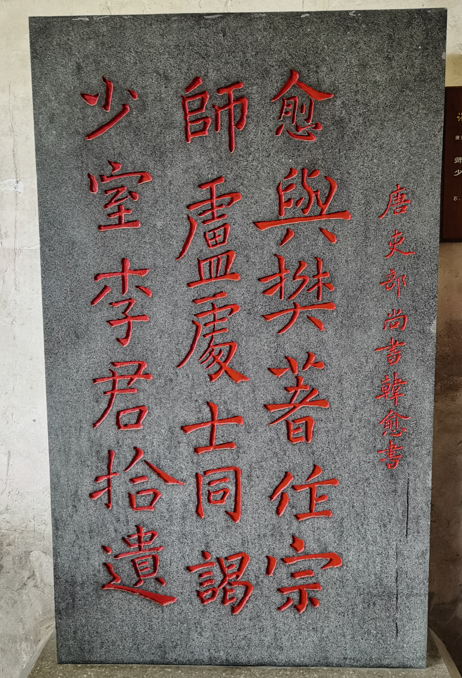 唐吏部尚書韓愈書
愈與樊著作任宗
師盧處士同謁
少室李君拾遺